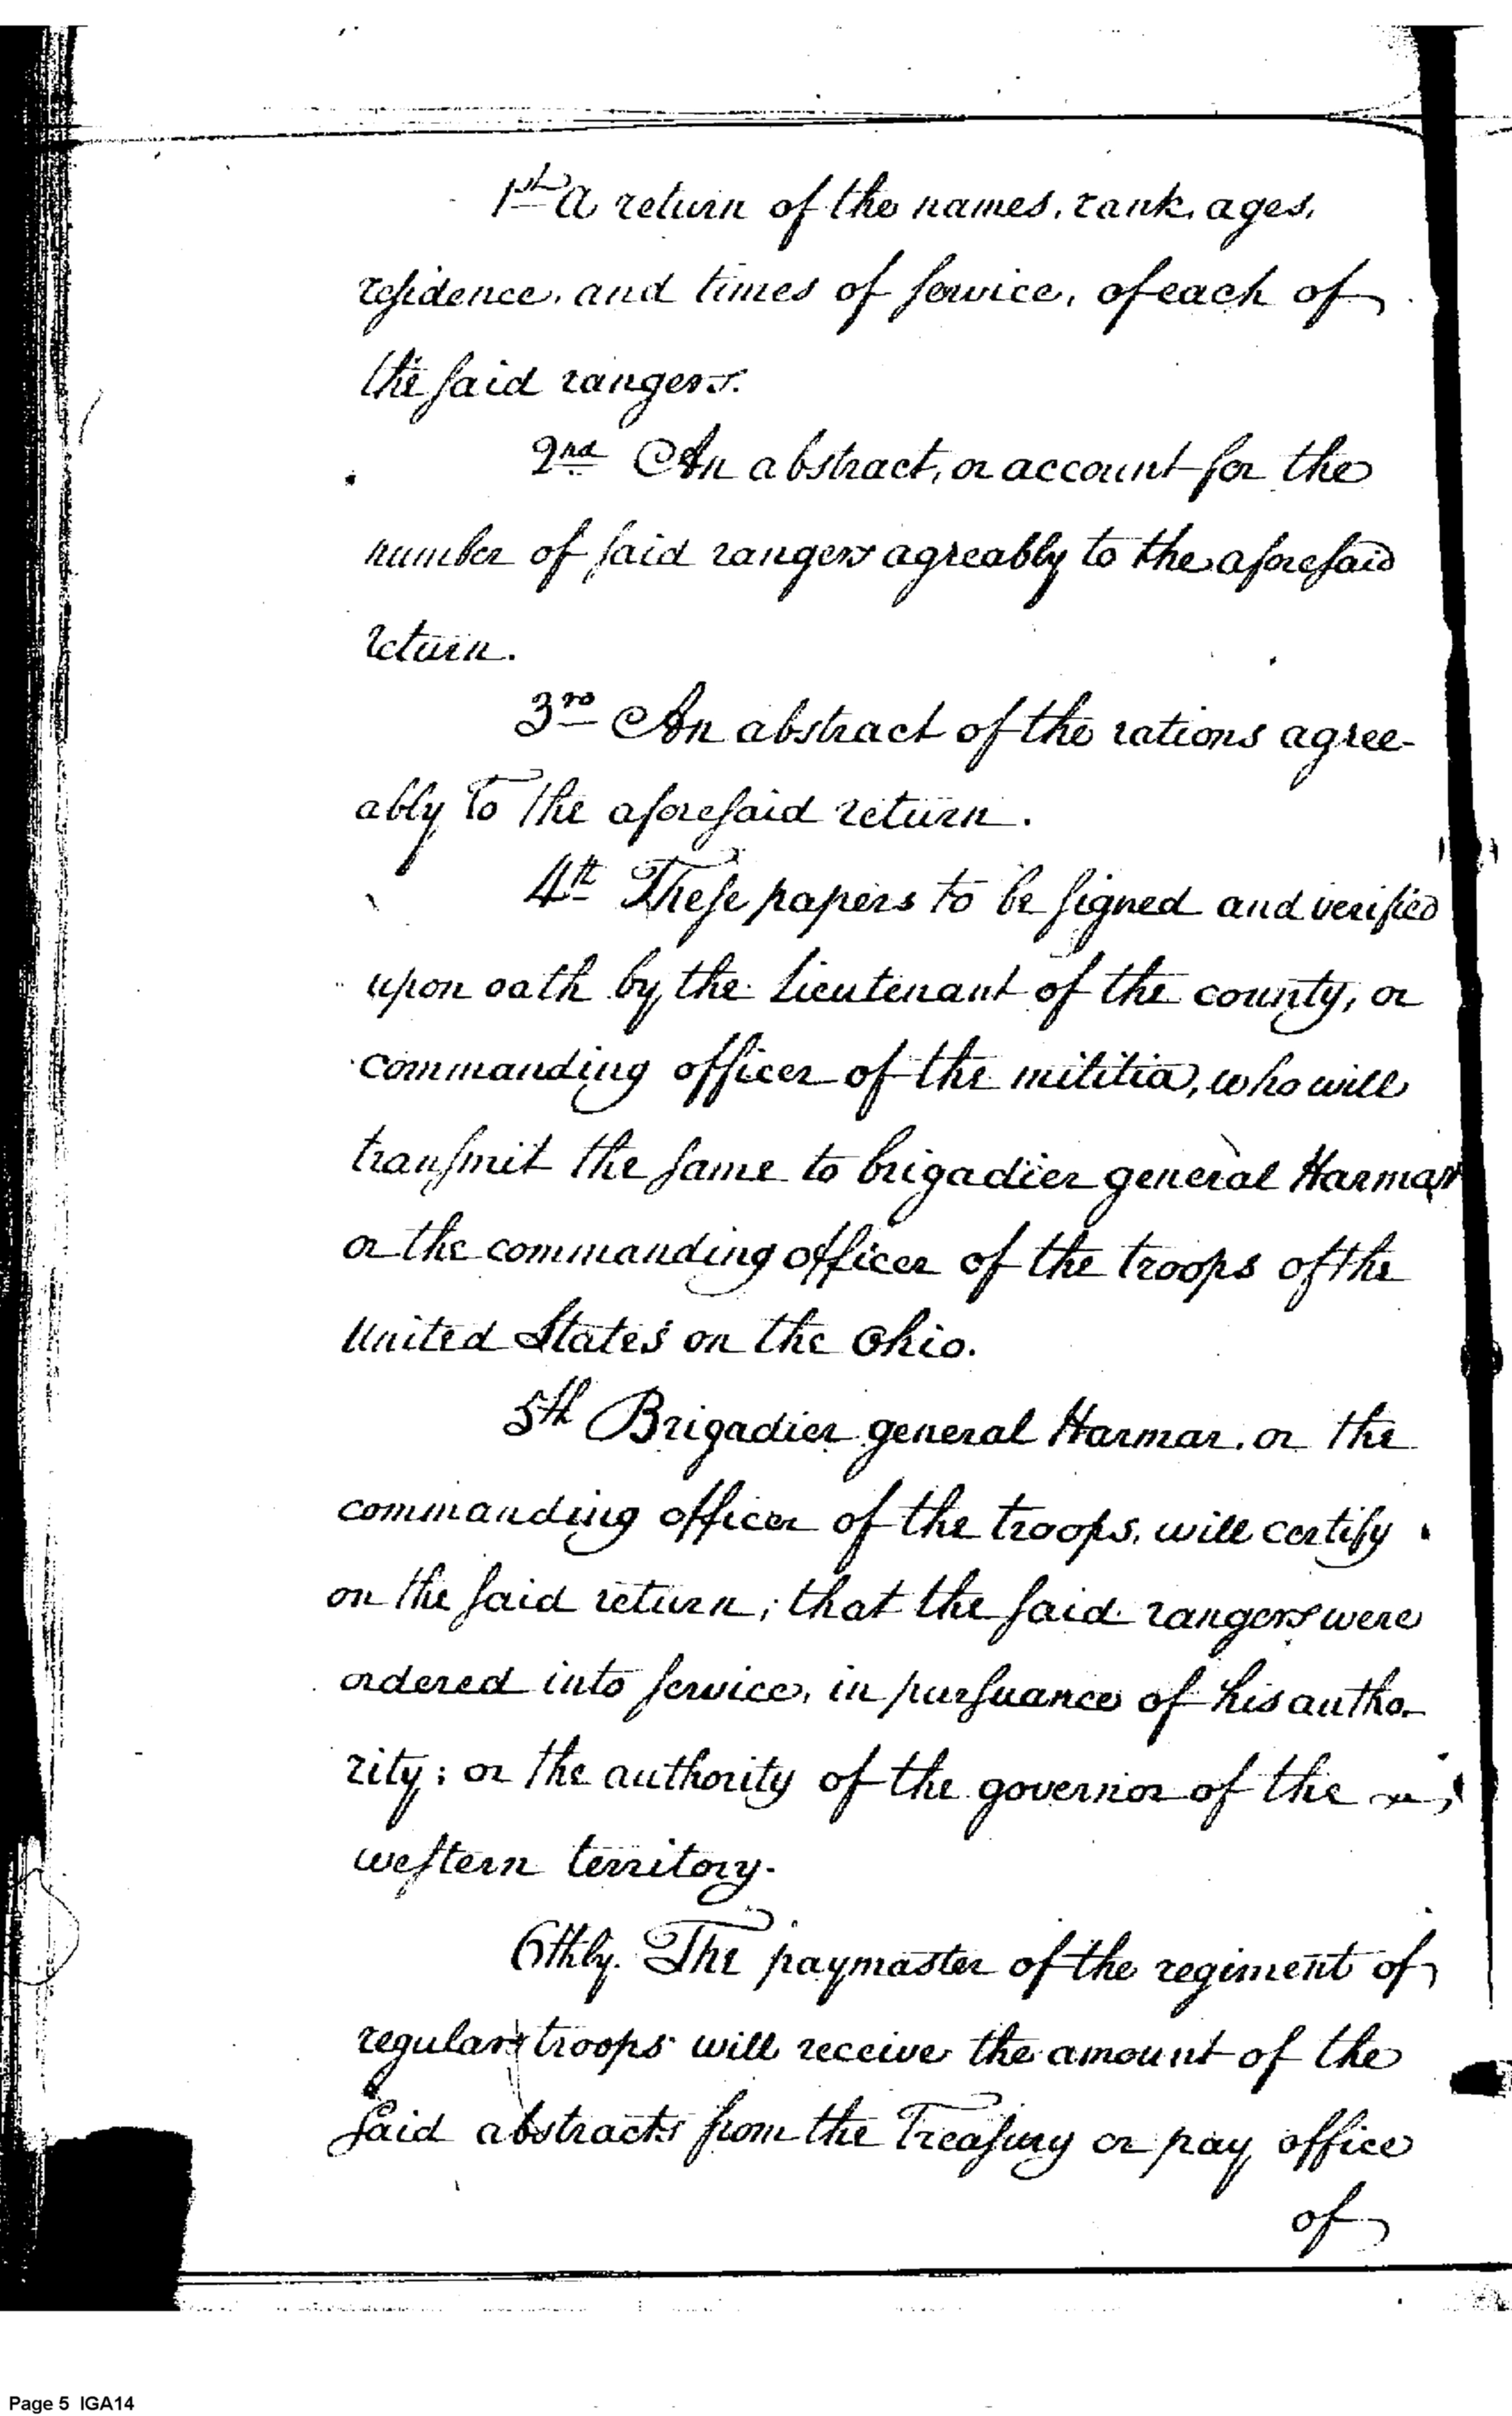 1st A return of the names, rank, ages,
residence, and times of service, of each of
the said rangers.
2nd An abstract, or account for the
number of said rangers agreably to the aforesaid
return.
3rd An abstract of the rations agree-
ably to the aforesaid return.
4th These papers to be signed and verified
upon oath by the lieutenant of the county, or
commanding officer of the militia, who will
transmit the same to brigadier general Harmar
or the commanding officer of the troops of the
United States on the Ohio.
5th Brigadier general Harmar, or the
commanding officer of the troops, will certify
on the said return; that the said rangers were
ordered into service, in pursuance of his autho-
rity; or the authority of the governor of the
western territory.
6thly. The paymaster of the regiment of
regular troops will receive the amount of the
said abstracts from the Treasury or pay office
of
Page 5 IGA14